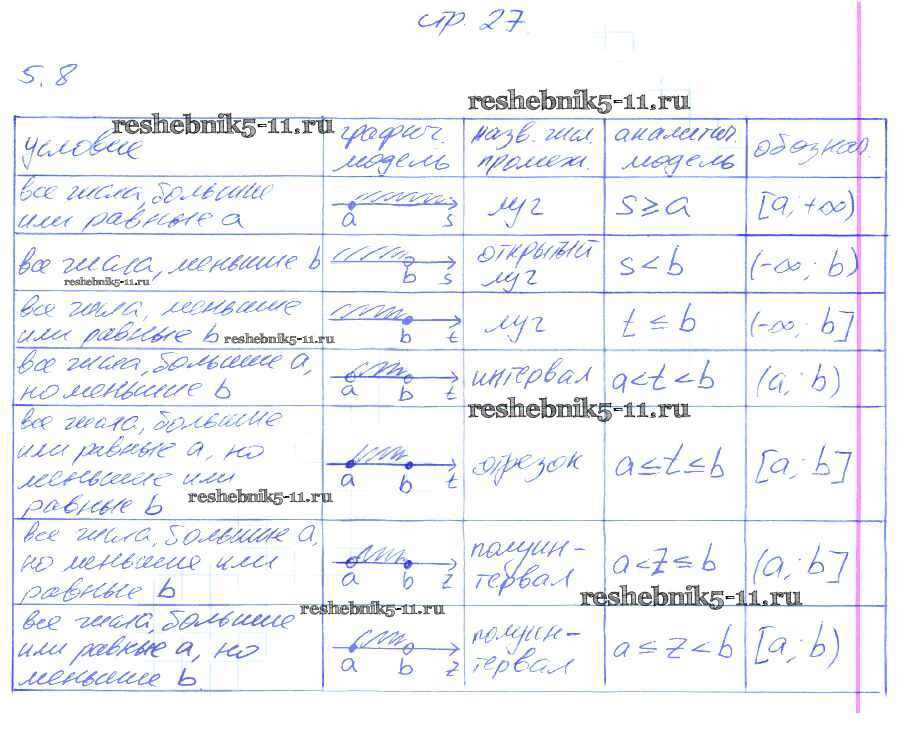 стр. 27
5.8
reshebnik5-11.ru
reshebnik5-11.ru
условие
графич. модель
назв. числ. промеж.
аналитич. модель
обознач.
все числа, большие
или равные a
a s
луч
s ≥ a
[a, +∞)
все числа, меньшие b
reshebnik5-11.ru
b s
открытый
луч
s < b
(-∞; b)
все числа, меньшие
или равные b
reshebnik5-11.ru
b t
луч
t ≤ b
(-∞; b]
все числа, большие a,
но меньшие b
a b t
интервал
a < t < b
(a; b)
reshebnik5-11.ru
все числа, большие
или равные a, но
меньшие или
равные b
reshebnik5-11.ru
a b t
отрезок
a ≤ t ≤ b
[a; b]
все числа, большие a,
но меньшие или
равные b
a b z
полуин-
тервал
a < z ≤ b
(a; b]
reshebnik5-11.ru
reshebnik5-11.ru
все числа, большие
или равные a, но
меньшие b
a b z
полуин-
тервал
a ≤ z < b
[a; b)